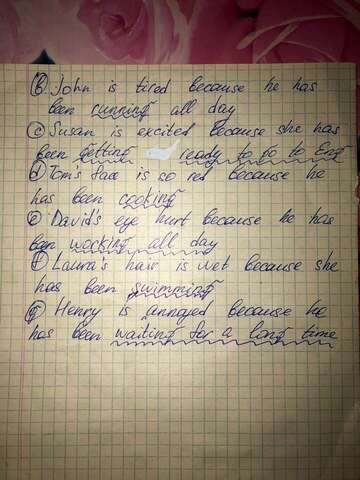 b) John is tired because he has
been running all day
c) Susan is excited because she has
been getting ready to go to Eng
d) Tom's face is so red because he
has been cooking
e) David's eye hurt because he has
been working all day
f) Laura's hair is wet because she
has been swimming
g) Henry is annoyed because he
has been waiting for a long time